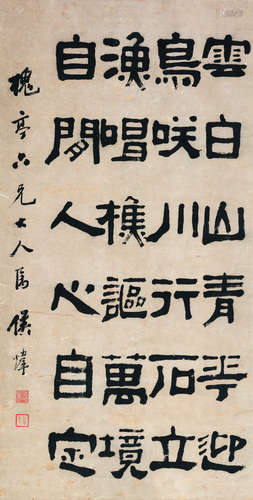 雲白山青華迎
鳥咲川行石立
漁唱樵謳萬境
自閒人心自定
槐亭六兄大人属 侯